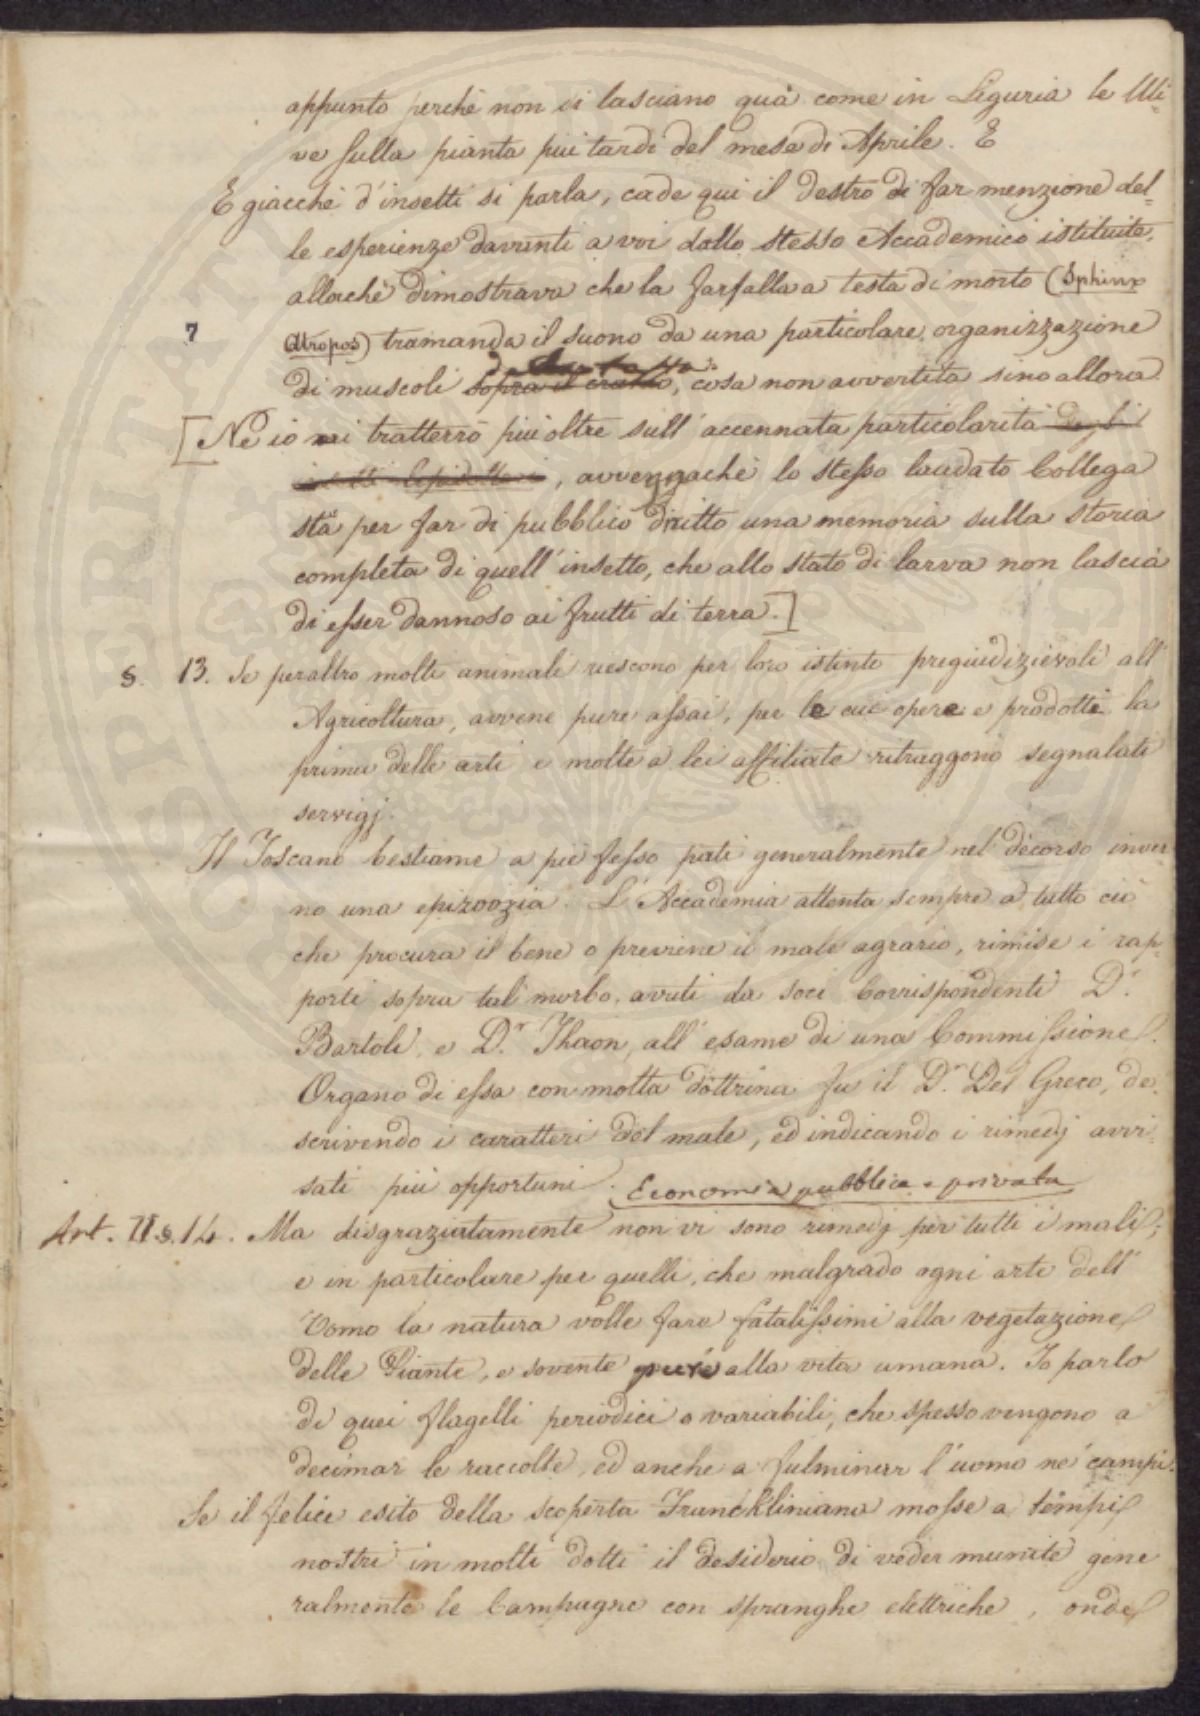 appunto perchè non si lasciano quà come in Liguria le Uli=
ve sulla pianta più tardi del mese di Aprile. E
E giacchè d'insetti si parla, cade qui il destro di far menzione del=
le esperienze davanti a voi dallo stesso Accademico istituite,
allorchè dimostrava che la farfalla a testa di morto (Sphinx
7 Atropos) tramanda il suono da una particolare organizzazione
di muscoli sopra il cranio, cosa non avvertita sino allora
[Ne io mi tratterrò più oltre sull'accennata particolarità degli
insetti Lepidotteri, avvengachè lo stesso laudato Collega
stà per far di pubblico diritto una memoria sulla storia
completa di quell'insetto, che allo stato di larva non lascia
di esser dannoso ai frutti di terra.]
§. 13. Se peraltro molti animali riescono per loro istinto pregiudizievoli all'
Agricoltura, avvene pure assai, per le cui opere e prodotti la
prima delle arti e molte a lei affiliate ritraggono segnalati
servigj.
Il Toscano bestiame a piè fesso patì generalmente nel decorso inver=
no una epizoozia. L'Accademia attenta sempre a tutto ciò
che procura il bene o previene il male agrario, rimise i rap=
porti sopra tal morbo, avuti da soci Corrispondenti D.r
Bartoli, e D.r Thaon, all'esame di una Commissione.
Organo di essa con molta dottrina fu il D.r Del Greco, de=
scrivendo i caratteri del male, ed indicando i rimedj avvi=
sati più opportuni. Economia pubblica e privata
Art. II §. 14. Ma disgraziatamente non vi sono rimedj per tutti i mali;
e in particolare per quelli, che malgrado ogni arte dell'
Uomo la natura volle fare fatalissimi alla vegetazione
delle Piante, e sovente pure alla vita umana. Io parlo
di quei flagelli periodici o variabili, che spesso vengono a
decimar le raccolte, ed anche a fulminar l'uomo ne' campi.
Se il felice esito della scoperta FrancKliniana mosse a tempi
nostri in molti dotti il desiderio di veder munite gene
ralmente le Campagne con spranghe elettriche, onde